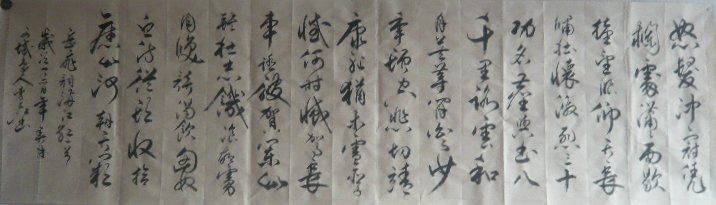 怒髮沖冠憑
欄處瀟雨歇
擡望眼仰天長
嘯壯懷激烈三十
功名塵與土八
千里路雲和
月莫等閒白了少
年頭空悲切靖
康恥猶未雪臣子
憾何時滅駕長
車踏破賀蘭山
缺壯志飢餐胡虜
肉笑談渴飲匈奴
血待從頭收拾
舊山河朝天闕
岳飛詞滿江紅
歲次年月